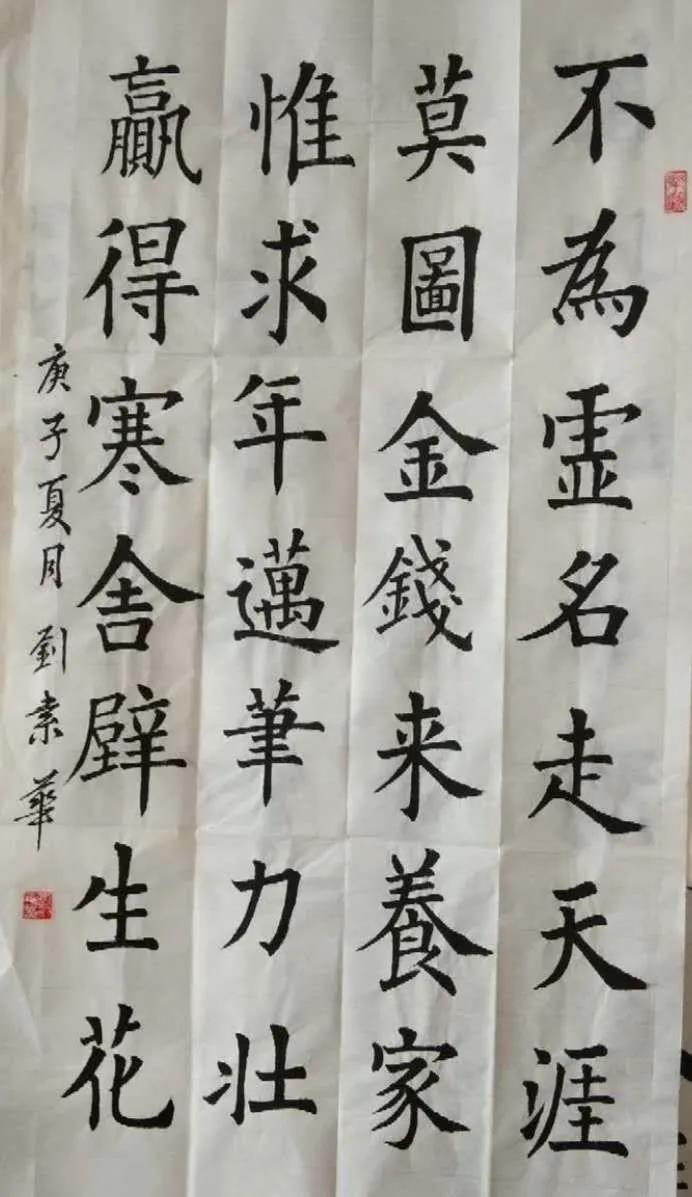 不為虛名走天涯
莫圖金錢来養家
惟求年邁筆力壮
贏得寒舍辟生花
庚子夏月 劉素華